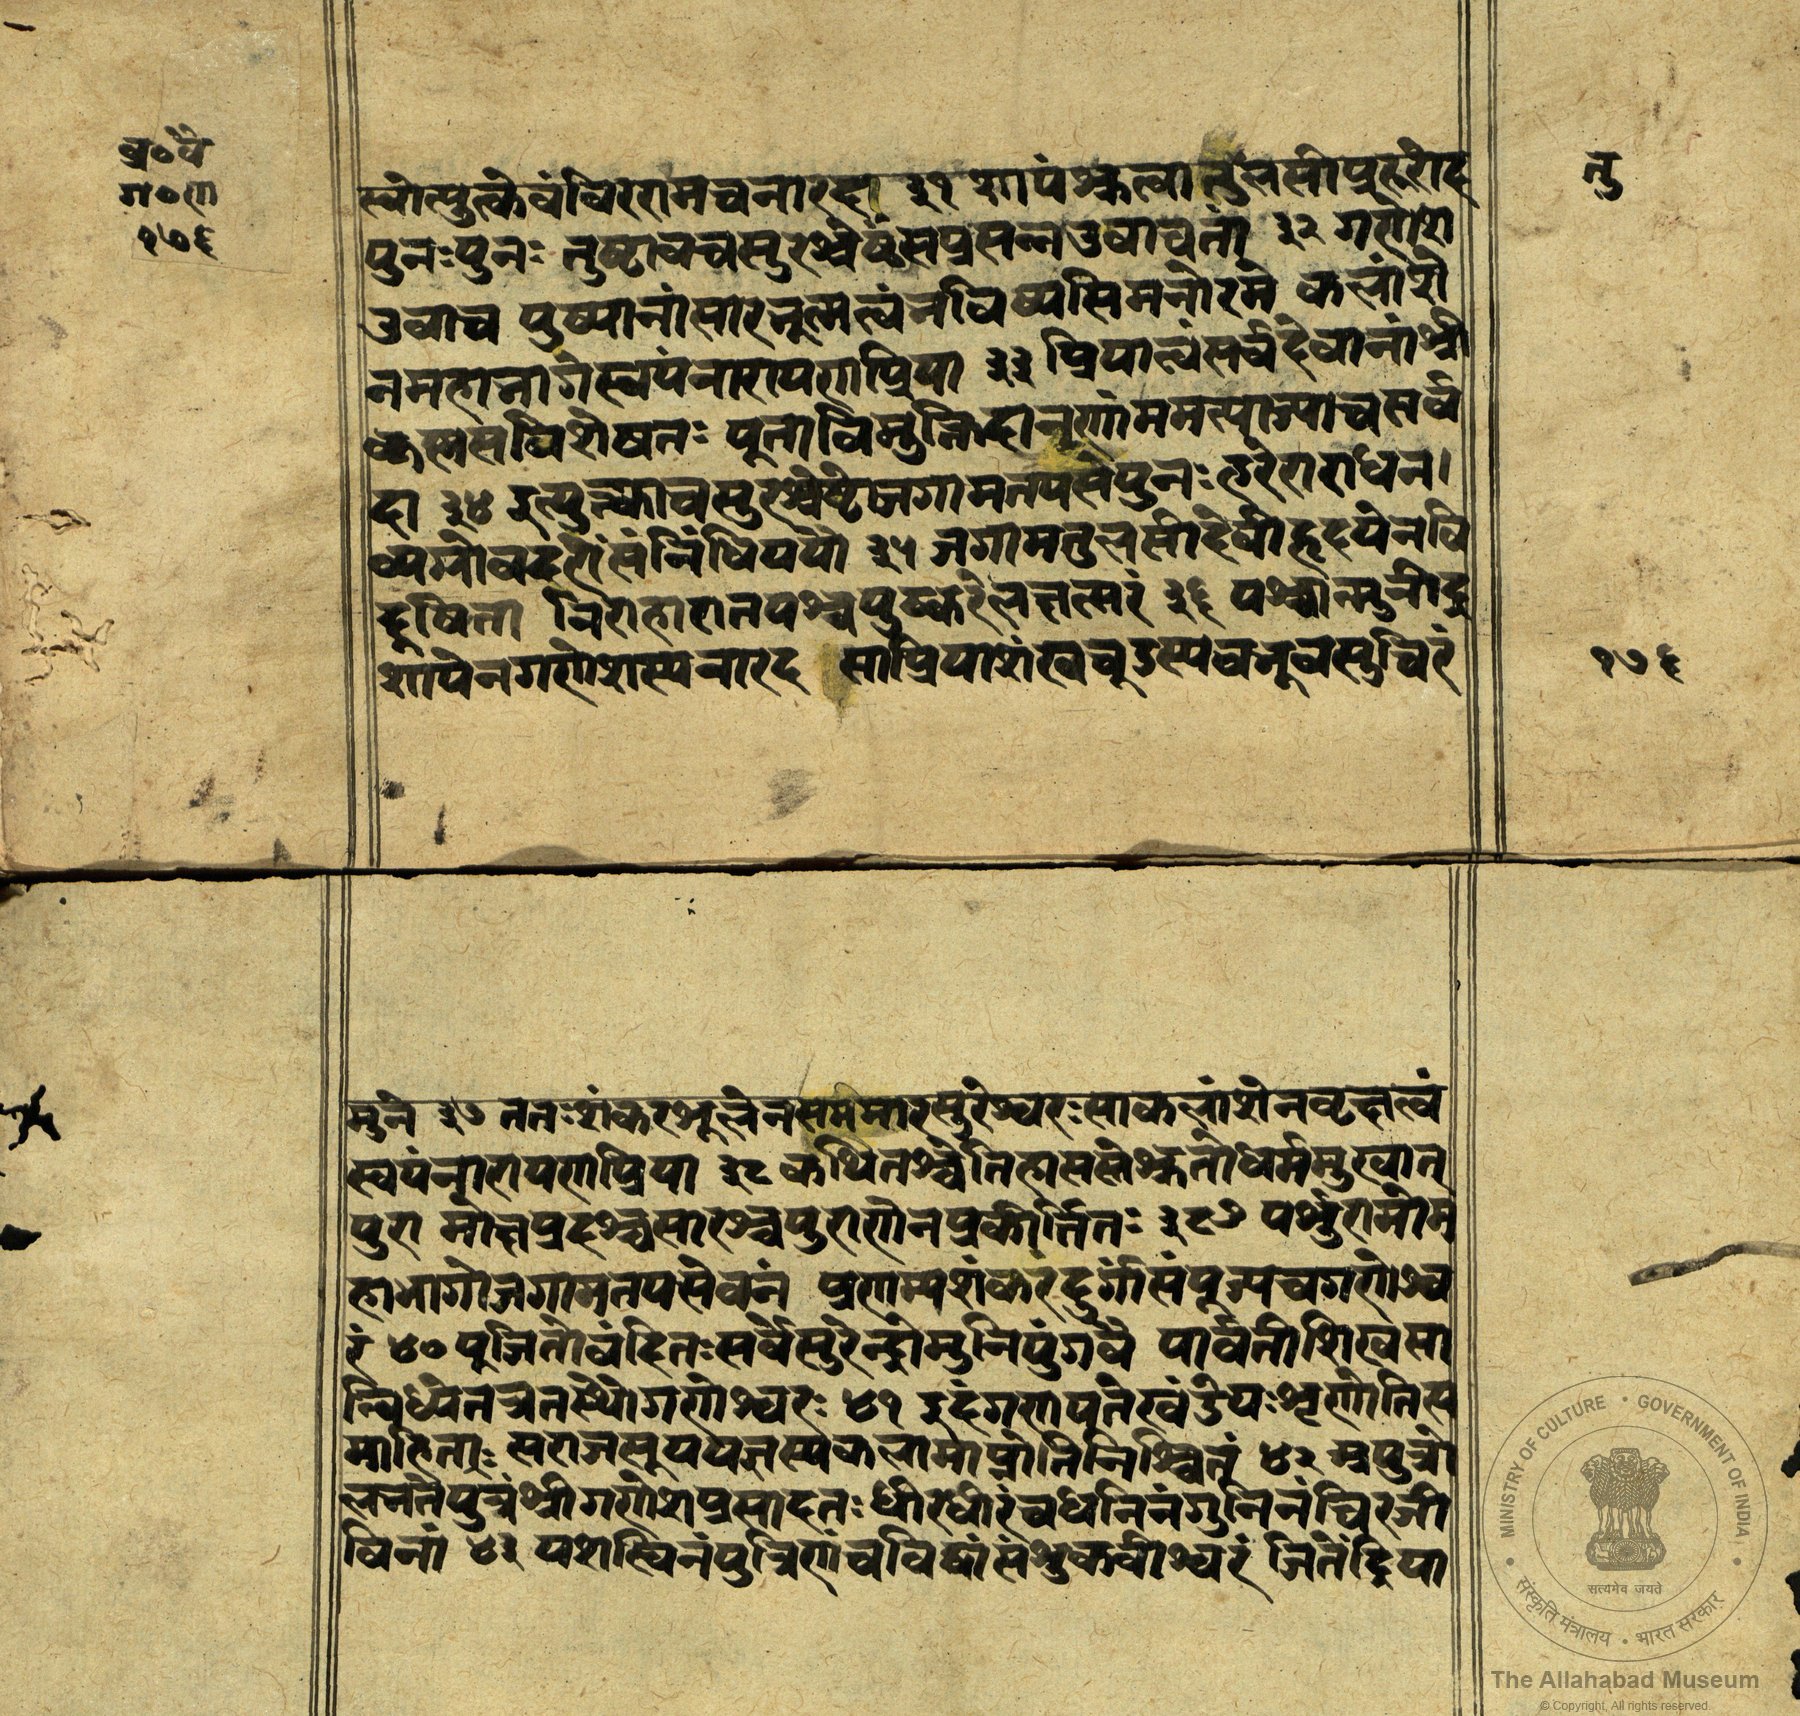 ब्र०वै
ग०ण
१७६
त्वोत्पुत्केवंविररामचनारद। ३१ शापंश्रुत्वातुलसीप्ररुरोद
पुनःपुनः तुष्टावचसुरश्रेष्ठंसप्रसन्नउवाचतां ३२ गणेश
उवाच पुष्पानांसारभूतात्वंभविष्यसिमनोरमे कलांशे
नमहाभागेस्वयंनारायणप्रिया ३३ प्रियात्वंसर्वदेवानांश्री
कृष्णस्यविशेषतः पूताविमुक्तिदानृणांममत्याज्याचसर्व
दा ३४ इत्युक्त्वाचसुरश्रेष्ठोजगामतपसेपुनः हरेराराधन।
व्यग्रोबदरीसंनिधिंययौ ३५ जगामतुलसीदेवीहृदयेनवि
दूषिता निराहारातपश्चपुष्करेलक्षवत्सरं ३६ पश्चान्मुनींद्र
शापेनगणेशस्यनारद साप्रियाशंखचूडस्यबभूवसुचिरं
तु
१७६
मुने ३७ ततःशंकरशूलेनसममारसुरेश्वरःसाकलांशेनवृक्षत्वं
स्वयंनारायणप्रिया ३८ कथितश्चेतिहासस्तेश्रुतोधर्ममुखात्
पुरा मोक्षप्रदश्चसारश्चपुराणेनप्रकीर्त्तितः ३९ पर्शुरामोम
हाभागोजगामतपसेवनं प्रणम्यशंकरंदुर्गांसंपूज्यचगणेश्व
रं ४० पूजितोवंदितःसर्वैसुरेन्द्रोमुनिपुंगवै पार्वतीशिवसा
न्निध्येतत्रतस्थौगणेश्वरः ४१ इदंगणपतेखंडेयःशृणोतिस
माहिताः सराजसूययज्ञस्यफलामाप्नोतिनिश्चितं ४२ अपुत्रो
लभतेपुत्रंश्रीगणेशप्रसादतः धीरंवीरंचधनिनंगुनिनंचिरजी
विनां ४३ यशस्विनंपुत्रिणंचविद्वांसंशुकवीश्वरं जितेंद्रिया
MINISTRY OF CULTURE • GOVERNMENT OF INDIA
सत्यमेव जयते
संस्कृति मंत्रालय • भारत सरकार
The Allahabad Museum
© Copyright, All rights reserved.